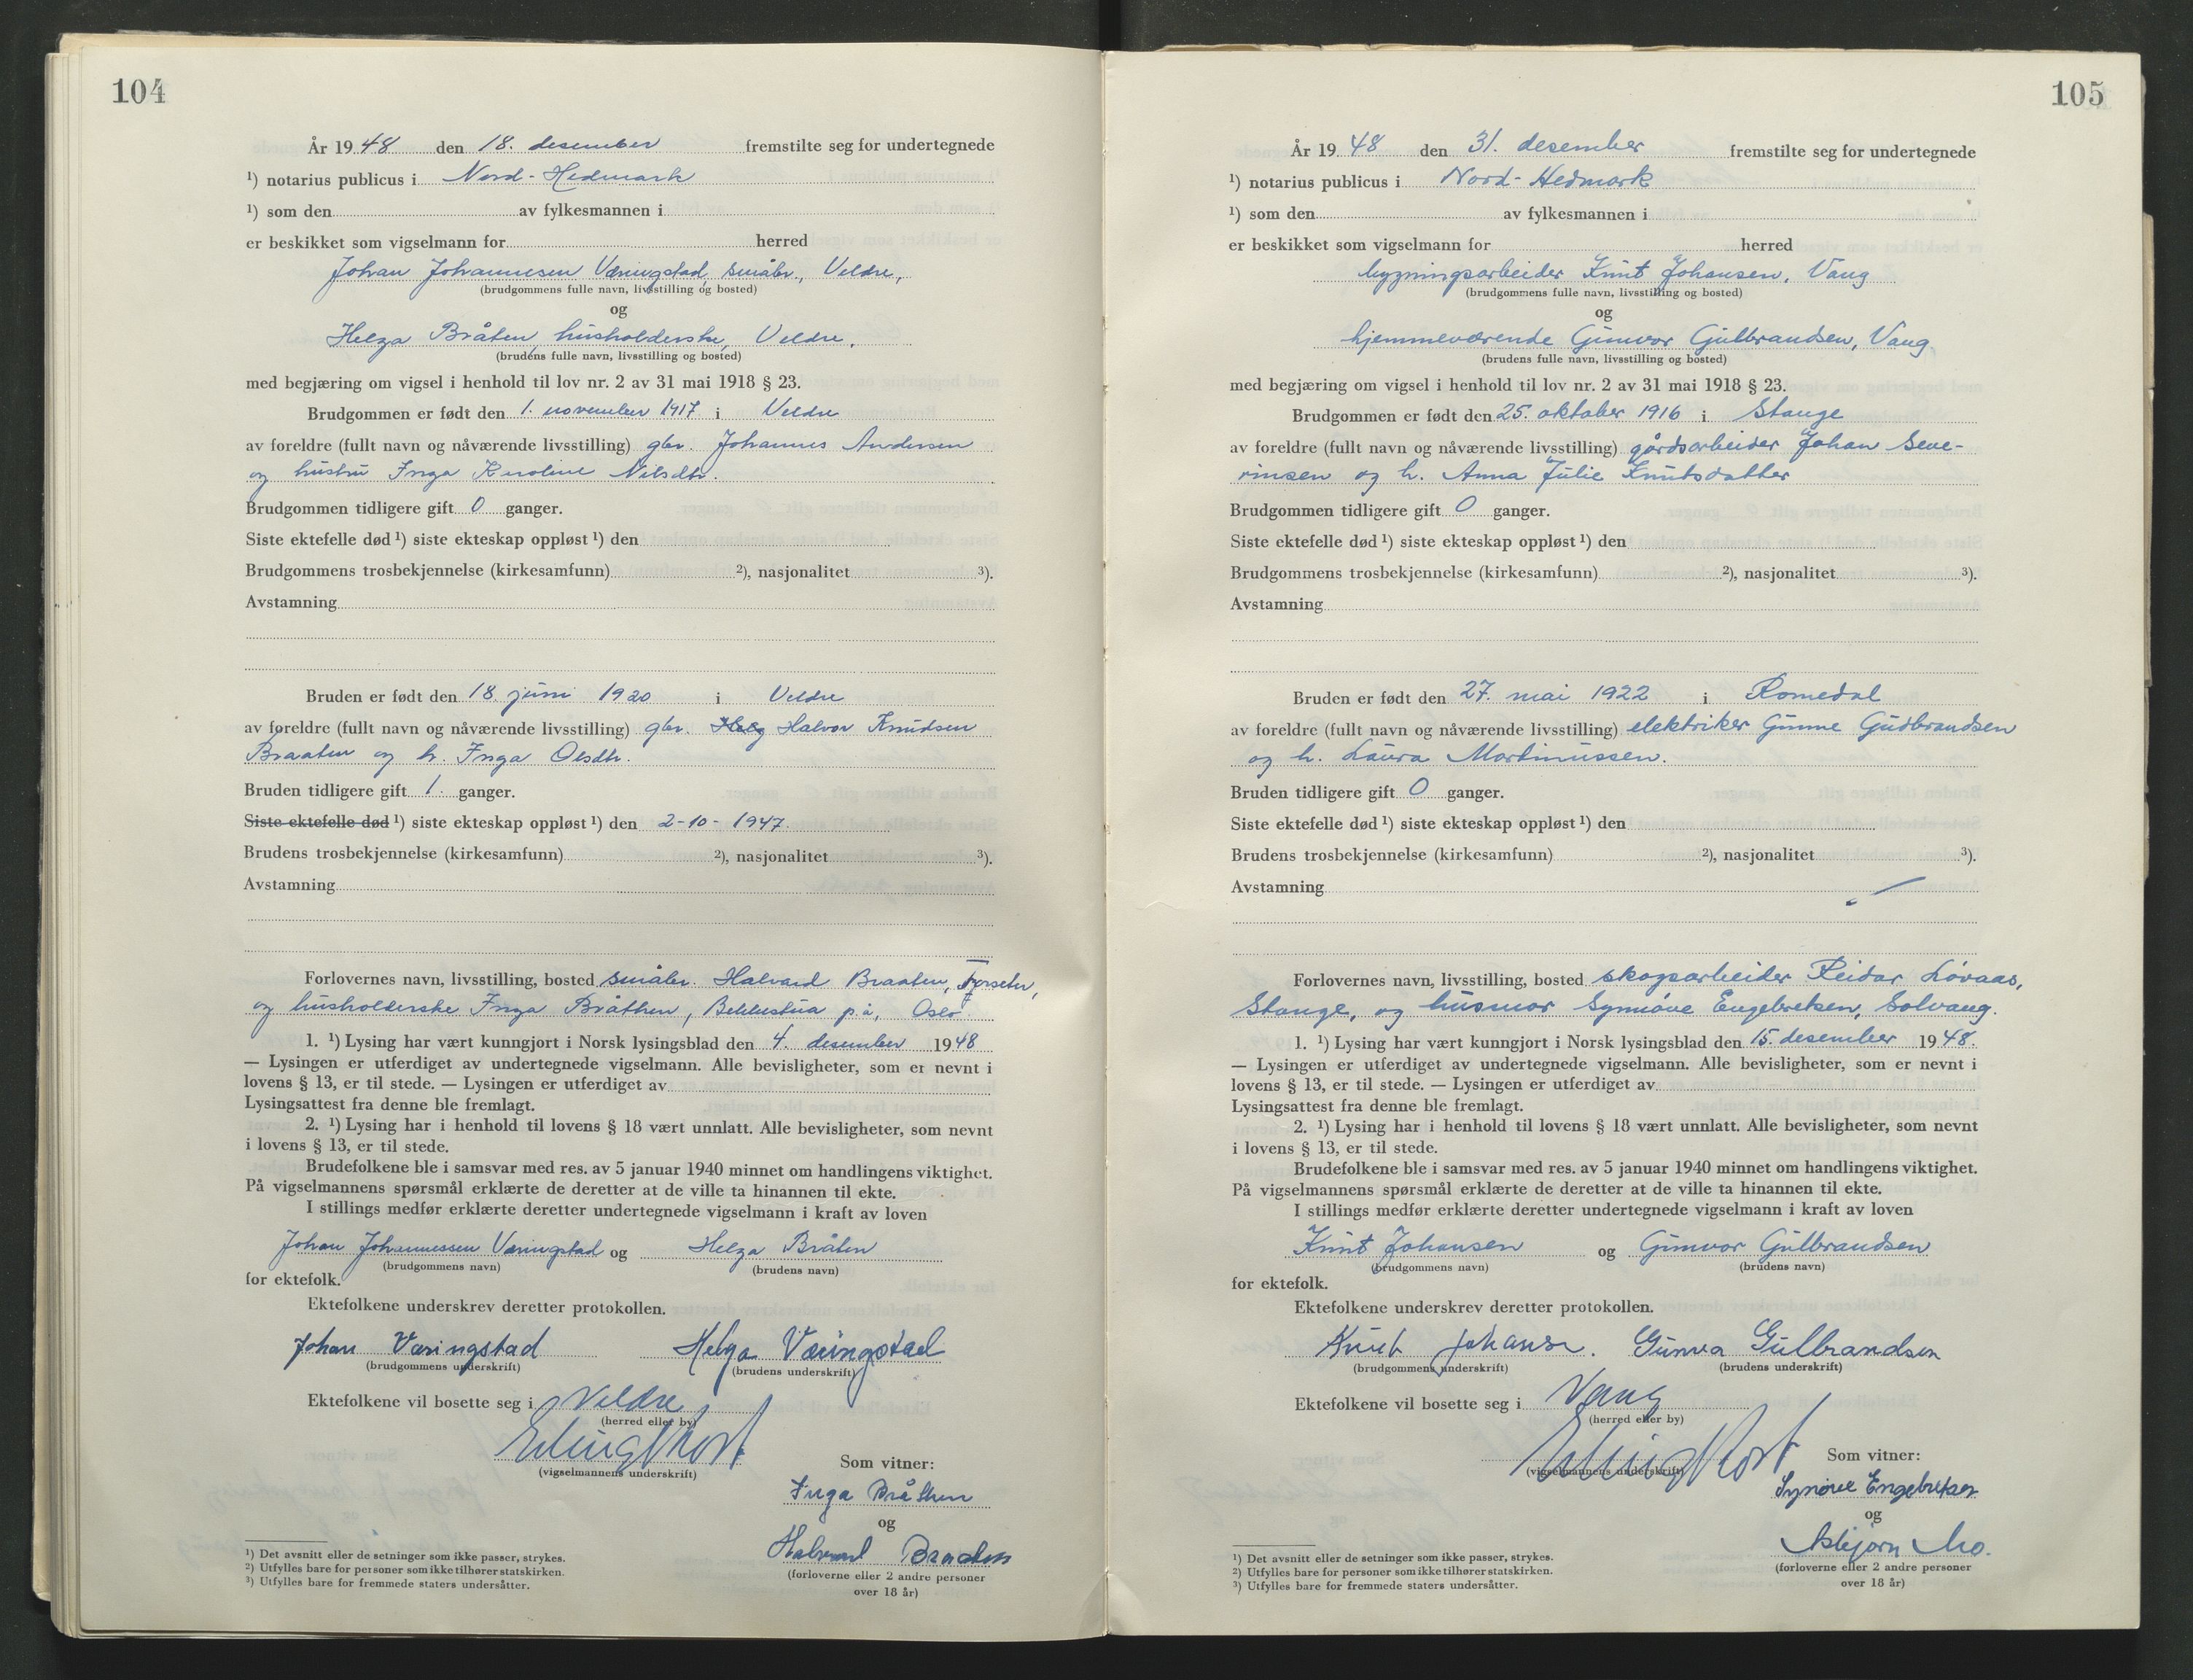 104
År 1948 den 18. desember fremstilte seg for undertegnede
¹) notarius publicus i Nord-Hedmark
¹) som den av fylkesmannen i
er beskikket som vigselmann for herred
Johan Johannesen Væringstad, småbr., Veldre,
(brudgommens fulle navn, livsstilling og bosted)
og
Helga Bråten, husholderske, Veldre.
(brudens fulle navn, livsstilling og bosted)
med begjæring om vigsel i henhold til lov nr. 2 av 31 mai 1918 § 23.
Brudgommen er født den 1. november 1917 i Veldre
av foreldre (fullt navn og nåværende livsstilling) gbr. Johannes Andersen
og hustru Inga Karoline Nilsdtr.
Brudgommen tidligere gift 0 ganger.
Siste ektefelle død ¹) siste ekteskap oppløst ¹) den
Brudgommens trosbekjennelse (kirkesamfunn) ²), nasjonalitet ³).
Avstamning
Bruden er født den 18. juni 1920 i Veldre
av foreldre (fullt navn og nåværende livsstilling) gbr. Helg Halvor Knudsen
Braaten og h. Inga Olsdtr.
Bruden tidligere gift 1. ganger.
Siste ektefelle død ¹) siste ekteskap oppløst ¹) den 2-10-1947.
Brudens trosbekjennelse (kirkesamfunn) ²), nasjonalitet ³).
Avstamning
Forlovernes navn, livsstilling, bosted småbr. Halvard Braaten,
og husholderske Inga Bråthen, Bekkestua p.å, Oslo.
1. ¹) Lysing har vært kunngjort i Norsk lysingsblad den 4. desember 1948
— Lysingen er utferdiget av undertegnede vigselmann. Alle bevisligheter, som er nevnt i
lovens § 13, er til stede. — Lysingen er utferdiget av
Lysingsattest fra denne ble fremlagt.
2. ¹) Lysing har i henhold til lovens § 18 vært unnlatt. Alle bevisligheter, som nevnt
i lovens § 13, er til stede.
Brudefolkene ble i samsvar med res. av 5 januar 1940 minnet om handlingens viktighet.
På vigselmannens spørsmål erklærte de deretter at de ville ta hinannen til ekte.
I stillings medfør erklærte deretter undertegnede vigselmann i kraft av loven
Johan Johannessen Væringstad og Helga Bråten
(brudgommens navn) (brudens navn)
for ektefolk.
Ektefolkene underskrev deretter protokollen.
Johan Væringstad Helga Væringstad
(brudgommens underskrift) (brudens underskrift)
Ektefolkene vil bosette seg i Veldre
(herred eller by)
Erling Rost
(vigselmannens underskrift)
Som vitner:
Inga Bråthen
og
Halvard Braaten
(forloverne eller 2 andre personer
over 18 år)
¹) Det avsnitt eller de setninger som ikke passer, strykes.
²) Utfylles bare for personer som ikke tilhører statskirken.
³) Utfylles bare for fremmede staters undersåtter.
105
År 1948 den 31. desember fremstilte seg for undertegnede
¹) notarius publicus i Nord-Hedmark
¹) som den av fylkesmannen i
er beskikket som vigselmann for herred
bygningsarbeider Knut Johansen, Vang
(brudgommens fulle navn, livsstilling og bosted)
og
hjemmeværende Gunvor Gulbrandsen, Vang
(brudens fulle navn, livsstilling og bosted)
med begjæring om vigsel i henhold til lov nr. 2 av 31 mai 1918 § 23.
Brudgommen er født den 25. oktober 1916 i Stange
av foreldre (fullt navn og nåværende livsstilling) gårdsarbeider Johan Seve-
rinsen og h. Anna Julie Knutsdatter
Brudgommen tidligere gift 0 ganger.
Siste ektefelle død ¹) siste ekteskap oppløst ¹) den
Brudgommens trosbekjennelse (kirkesamfunn) ²), nasjonalitet ³).
Avstamning
Bruden er født den 27. mai 1922 i Romedal
av foreldre (fullt navn og nåværende livsstilling) elektriker Gunne Gudbrandsen
og h. Laura Martinussen.
Bruden tidligere gift 0 ganger.
Siste ektefelle død ¹) siste ekteskap oppløst ¹) den
Brudens trosbekjennelse (kirkesamfunn) ²), nasjonalitet ³).
Avstamning
Forlovernes navn, livsstilling, bosted skogsarbeider Reidar Løvaas,
Stange, og husmor Synnøve Engebretsen, Solvang.
1. ¹) Lysing har vært kunngjort i Norsk lysingsblad den 15. desember 1948.
— Lysingen er utferdiget av undertegnede vigselmann. Alle bevisligheter, som er nevnt i
lovens § 13, er til stede. — Lysingen er utferdiget av
Lysingsattest fra denne ble fremlagt.
2. ¹) Lysing har i henhold til lovens § 18 vært unnlatt. Alle bevisligheter, som nevnt
i lovens § 13, er til stede.
Brudefolkene ble i samsvar med res. av 5 januar 1940 minnet om handlingens viktighet.
På vigselmannens spørsmål erklærte de deretter at de ville ta hinannen til ekte.
I stillings medfør erklærte deretter undertegnede vigselmann i kraft av loven
Knut Johansen og Gunvor Gulbrandsen
(brudgommens navn) (brudens navn)
for ektefolk.
Ektefolkene underskrev deretter protokollen.
Knut Johansen. Gunvor Gulbrandsen
(brudgommens underskrift) (brudens underskrift)
Ektefolkene vil bosette seg i Vang
(herred eller by)
Erling Rost
(vigselmannens underskrift)
Som vitner:
Synøve Engebretsen
og
Asbjørn Mo.
(forloverne eller 2 andre personer
over 18 år)
¹) Det avsnitt eller de setninger som ikke passer, strykes.
²) Utfylles bare for personer som ikke tilhører statskirken.
³) Utfylles bare for fremmede staters undersåtter.